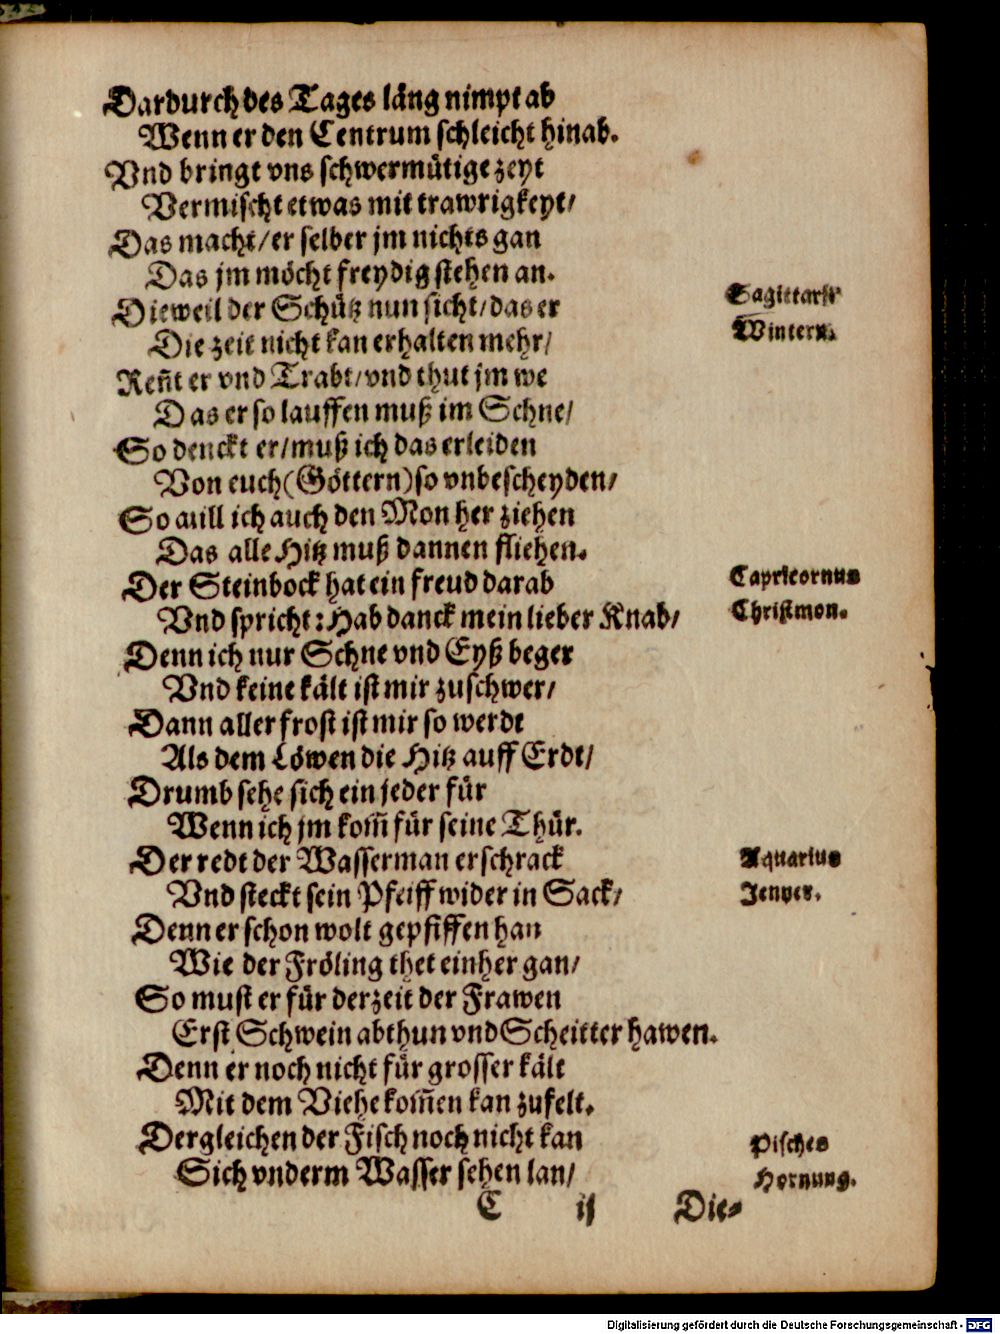 Dardurch des Tages läng nimpt ab
Wenn er den Centrum schleicht hinab.
Vnd bringt vns schwermütige zeyt
Vermischt etwas mit trawrigkeyt/
Das macht/er selber jm nichts gan
Das jm möcht freydig stehen an.
Dieweil der Schütz nun sicht/das er
Sagittari⁹
Die zeit nicht kan erhalten mehr/
Winterm.
Reñt er vnd Trabt/vnd thut jm we
Das er so lauffen muß im Schne/
So denckt er/muß ich das erleiden
Von euch (Göttern) so vnbescheyden/
So will ich auch den Mon her ziehen
Das alle Hitz muß dannen fliehen.
Der Steinbock hat ein freud darab
Capricornus
Vnd spricht: Hab danck mein lieber Knab/
Christmon.
Denn ich nur Schne vnd Eyß beger
Vnd keine kält ist mir zuschwer/
Dann aller frost ist mir so werdt
Als dem Löwen die Hitz auff Erdt/
Drumb sehe sich ein jeder für
Wenn ich jm kom̃ für seine Thür.
Der redt der Wasserman erschrack
Aquarius
Vnd steckt sein Pfeiff wider in Sack/
Jenner.
Denn er schon wolt gepfiffen han
Wie der Fröling thet einher gan/
So must er für derzeit der Frawen
Erst Schwein abthun vnd Scheitter hawen.
Denn er noch nicht für grosser kält
Mit dem Viehe kom̃en kan zufelt.
Dergleichen der Fisch noch nicht kan
Pisches
Sich vnderm Wasser sehen lan/
Hornung.
C ij Die-
Digitalisierung gefördert durch die Deutsche Forschungsgemeinschaft - DFG